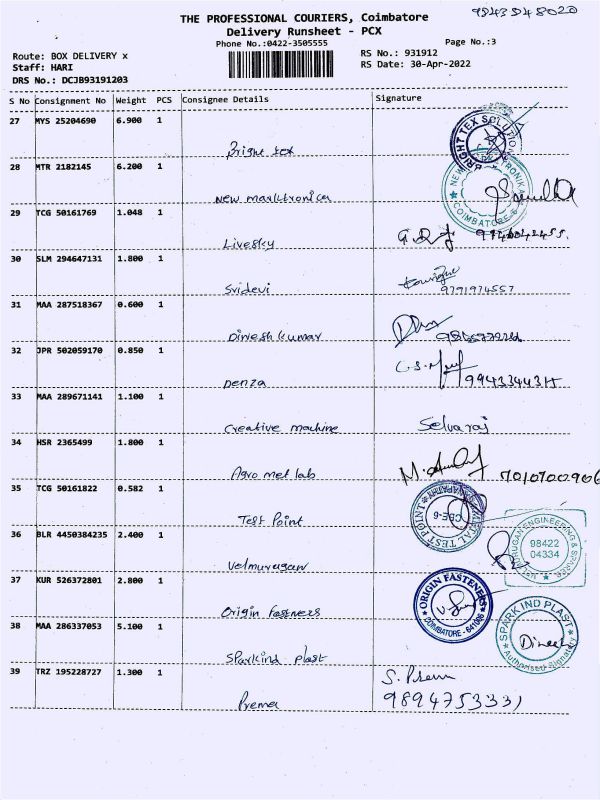 THE PROFESSIONAL COURIERS, Coimbatore
Delivery Runsheet - PCX
Phone No.:0422-3505555
Page No.:3
Route: BOX DELIVERY x
Staff: HARI
DRS No.: DCJB93191203
RS No.: 931912
RS Date: 30-Apr-2022
S No Consignment No Weight PCS Consignee Details Signature
27 MYS 25204690 6.900 1
Bright tex
BRIGHT TEX
28 MTR 2182145 6.200 1
New marktronica
COIMBATORE-6
29 TCG 50161769 1.048 1
Livesky
30 SLM 294647131 1.800 1
Sridevi
9791974557
31 MAA 287518367 0.600 1
Dineshkumar
32 JPR 502059170 0.850 1
Denza
33 MAA 289671141 1.100 1
Creative machine Selvaraj
34 HSR 2365499 1.800 1
Agro met lab 7010700906
35 TCG 50161822 0.582 1
Test Point
METAL TEST POINT
CBE-6
36 BLR 4450384235 2.400 1
Velmurugan
MURUGAN ENGINEERING &
98422
04334
37 KUR 526372801 2.800 1
Origin Fastners
ORIGIN FASTENERS
COIMBATORE - 641006
38 MAA 286337053 5.100 1
Sparkind plast
SPARK IND PLAST
Dinesh
Authorised Signatory
39 TRZ 195228727 1.300 1
Prema
S. Prem
9894753331